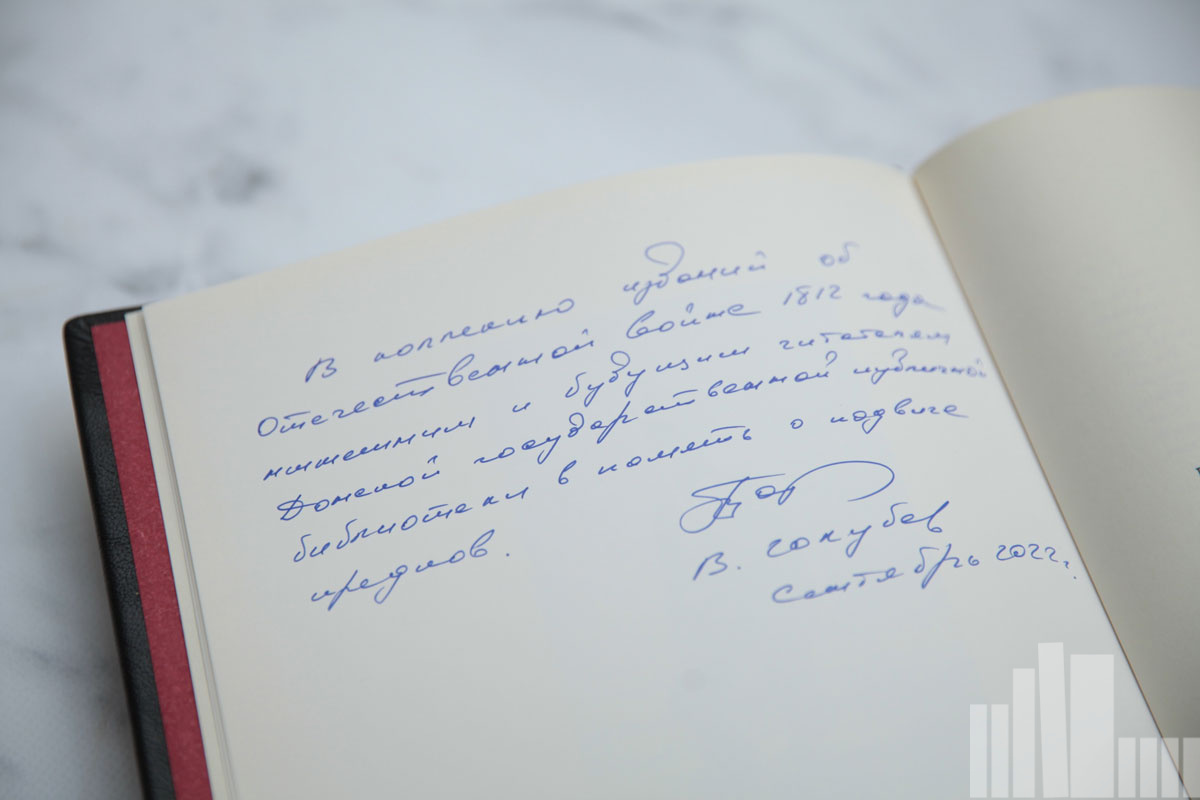 В коллекцию изданий об
Отечественной войне 1812 года
нынешним и будущим читателям
Донской государственной публичной
библиотеки в память о подвиге
предков.
В. Голубев
Сентябрь 2022г.